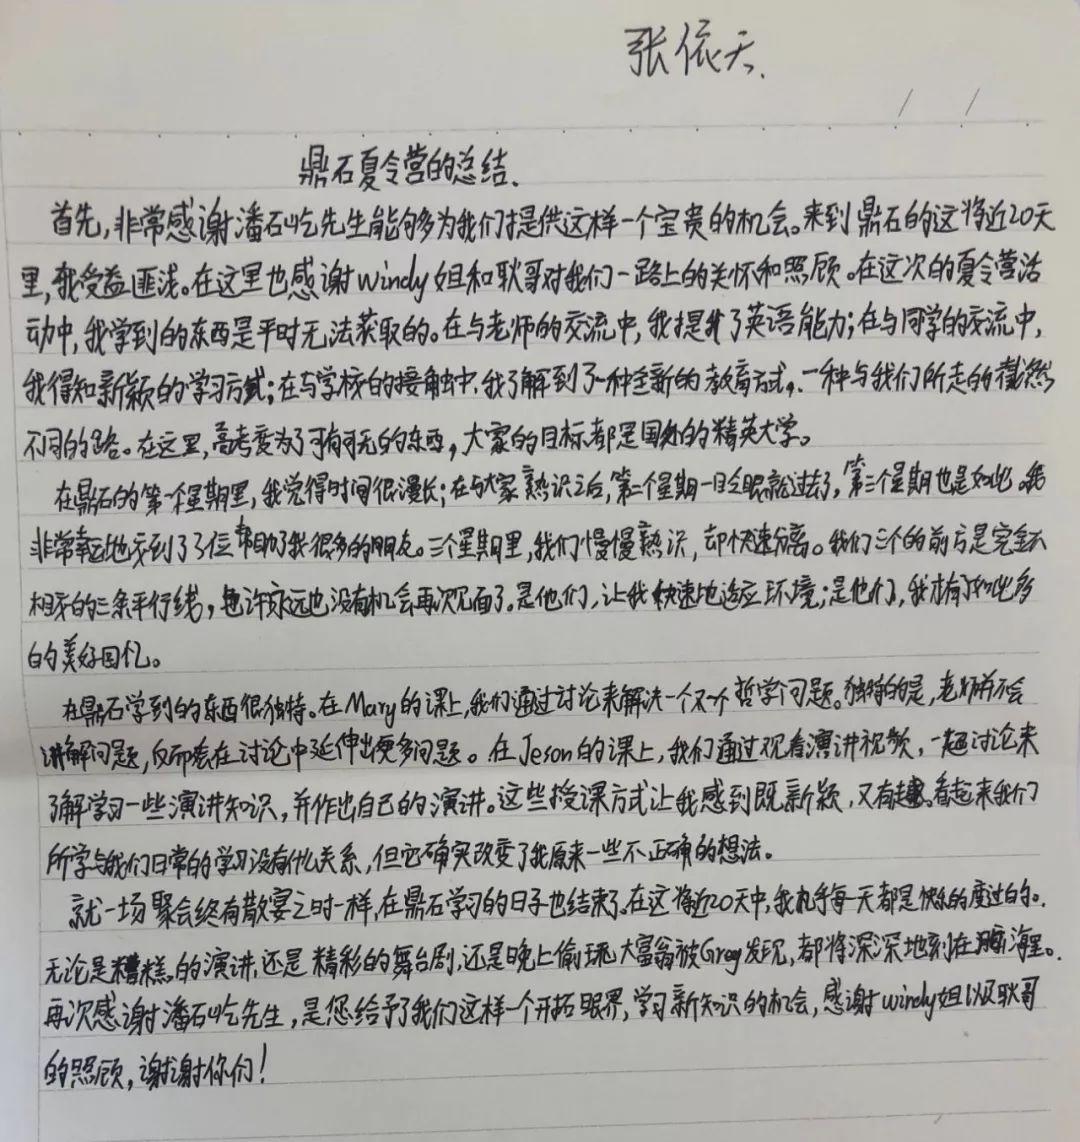 张依天.
/ /
鼎石夏令营的总结.
首先,非常感谢潘石屹先生能够为我们提供这样一个宝贵的机会。来到鼎石的这将近20天
里,我受益匪浅。在这里也感谢windy姐和耿哥对我们一路上的关怀和照顾。在这次的夏令营活
动中,我学到的东西是平时无法获取的。在与老师的交流中,我提升了英语能力;在与同学的交流中,
我得知新颖的学习方式;在与学校的接触中,我了解到了一种全新的教育方式,一种与我们所走的截然
不同的路。在这里,高考变为了可有可无的东西,大家的目标都是国外的精英大学。
在鼎石的第一个星期里,我觉得时间很漫长;在与大家熟识之后,第二个星期一眨眼就过去了,第三个星期也是如此。我
非常幸运地交到了3位帮助了我很多的朋友。三个星期里,我们慢慢熟识,却快速分离。我们三个的前方是完全不
相交的三条平行线,也许永远也没有机会再次见面了。是他们,让我快速地适应环境;是他们,我才有了如此多
的美好回忆。
在鼎石学到的东西很独特。在Mary的课上,我们通过讨论来解决一个个哲学问题。独特的是,老师并不会
讲解问题,反而会在讨论中延伸出更多问题。在Jeson的课上,我们通过观看演讲视频,一起讨论来
了解学习一些演讲知识,并作出自己的演讲。这些授课方式让我感到既新颖,又有趣。看起来我们
所学与我们日常的学习没有什么关系,但它确实改变了我原来一些不正确的想法。
就一场聚会终有散宴之时一样,在鼎石学习的日子也结束了。在这将近20天中,我几乎每一天都是快乐的度过的。
无论是糟糕的演讲,还是精彩的舞台剧,还是晚上偷玩大富翁被Greg发现,都将深深地刻在脑海里。
再次感谢潘石屹先生,是您给予了我们这样一个开拓眼界,学习新知识的机会,感谢windy姐以及耿哥
的照顾,谢谢你们!